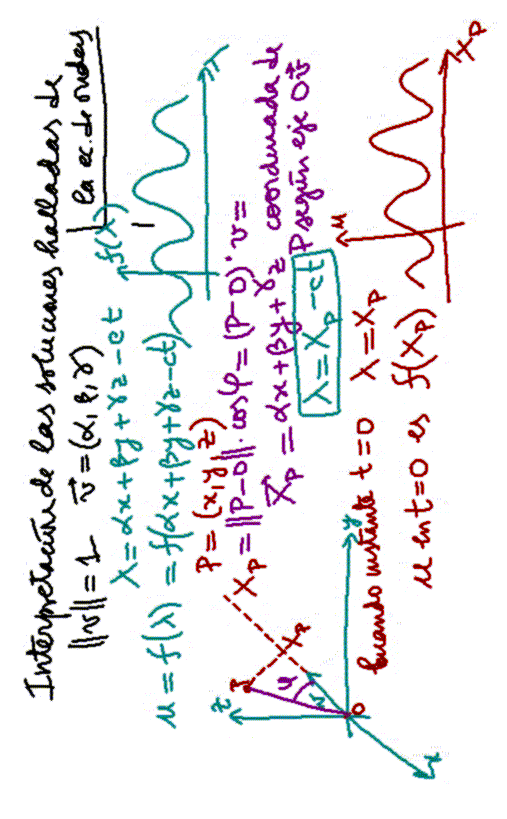 Interpretación de las soluciones halladas de
la ec. de ondas
||v|| = 1 v⃗ = (α, β, γ)
λ = αx + βy + γz - ct
f(λ)
λ
u = f(λ) = f(αx + βy + γz - ct)
P = (x, y, z)
X_P = ||P-O|| · cos φ = (P-O) · v =
X_P = αx + βy + γz coordenada de
P según eje Ov⃗
λ = X_P - ct
z
P
φ
v
X_P
O
y
x
Cuando instante t = 0 λ = X_P
u en t = 0 es f(X_P)
u
X_P